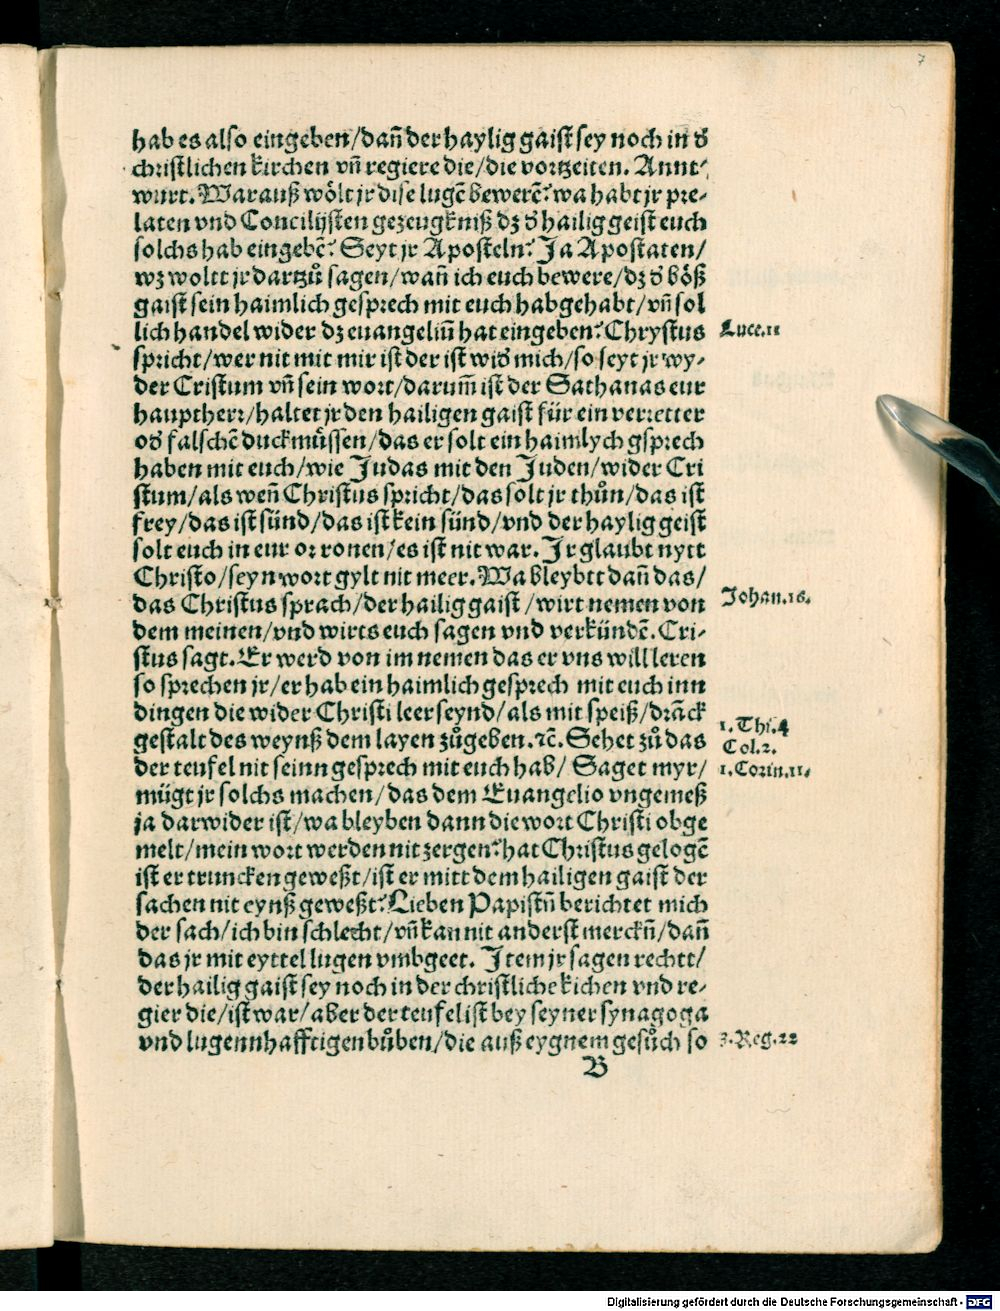 7
hab es also eingeben/dañ der haylig gaist sey noch in d̕
christlichen kirchen vñ regiere die/die vortzeiten. Annt⸗
wurt. Warauß wölt jr dise lugẽ bewerẽ? wa habt jr pre⸗
laten vnd Concilijsten gezeugkniß dz d̕ hailig geist euch
solchs hab eingebẽ? Seyt jr Aposteln? Ja Apostaten/
wz woltt jr dartzů sagen/wañ ich euch bewere/dz d̕ böß
gaist sein haimlich gesprech mit euch hab gehabt/vñ sol
lich handel wider dz euangeliũ hat eingeben? Chrystus
Luce.11
spricht/wer nit mit mir ist der ist wid̕ mich/so seyt jr wy⸗
der Cristum vñ sein wort/darum̃ ist der Sathanas eur
hauptherr/haltet jr den hailigen gaist für ein verretter
od̕ falschẽ duckmüssen/das er solt ein haimlych gsprech
haben mit euch/wie Judas mit den Juden/wider Cri
stum/als weñ Christus spricht/das solt jr thůn/das ist
frey/das ist sünd/das ist kein sünd/vnd der haylig geist
solt euch in eur or ronen/es ist nit war. Jr glaubt nytt
Christo/seyn wort gylt nit meer. Wa bleybtt dañ das/
das Christus sprach/der hailig gaist/wirt nemen von
Johan.16.
dem meinen/vnd wirts euch sagen vnd verkündẽ. Cri⸗
stus sagt. Er werd von im nemen das er vns will leren
so sprechen jr/er hab ein haimlich gesprech mit euch inn
dingen die wider Christi leer seynd/als mit speiß/drãck
1. Thi.4
gestalt des weynß dem layen zůgeben.ꝛc̃. Sehet zů das
Col.2.
der teufel nit seinn gesprech mit euch hab/ Saget myr/
1. Corin.11.
mügt jr solchs machen/das dem Euangelio vngemeß
ja darwider ist/wa bleyben dann die wort Christi obge
melt/mein wort werden nit zergen? hat Christus gelogẽ
ist er truncken geweßt/ist er mitt dem hailigen gaist der
sachen nit eynß geweßt? Lieben Papistñ berichtet mich
der sach/ich bin schlecht/vñ kan nit anderst merckñ/dañ
das jr mit eyttel lugen vmbgeet. Item jr sagen rechtt/
der hailig gaist sey noch in der christliche kichen vnd re⸗
gier die/ist war/aber der teufel ist bey seyner synagoga
vnd lugennhafftigen bůben/die auß eygnem gesůch so
3. Reg.22
B
Digitalisierung gefördert durch die Deutsche Forschungsgemeinschaft - DFG